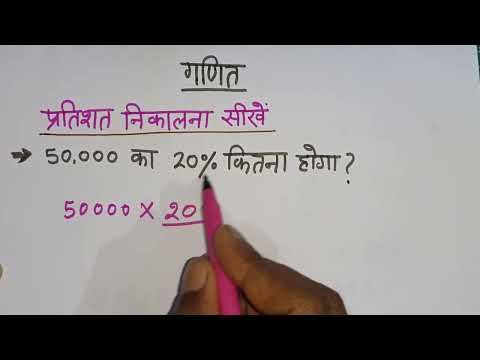 गणित
प्रतिशत निकालना सीखें
→ 50,000 का 20% कितना होगा?
50000 × 20